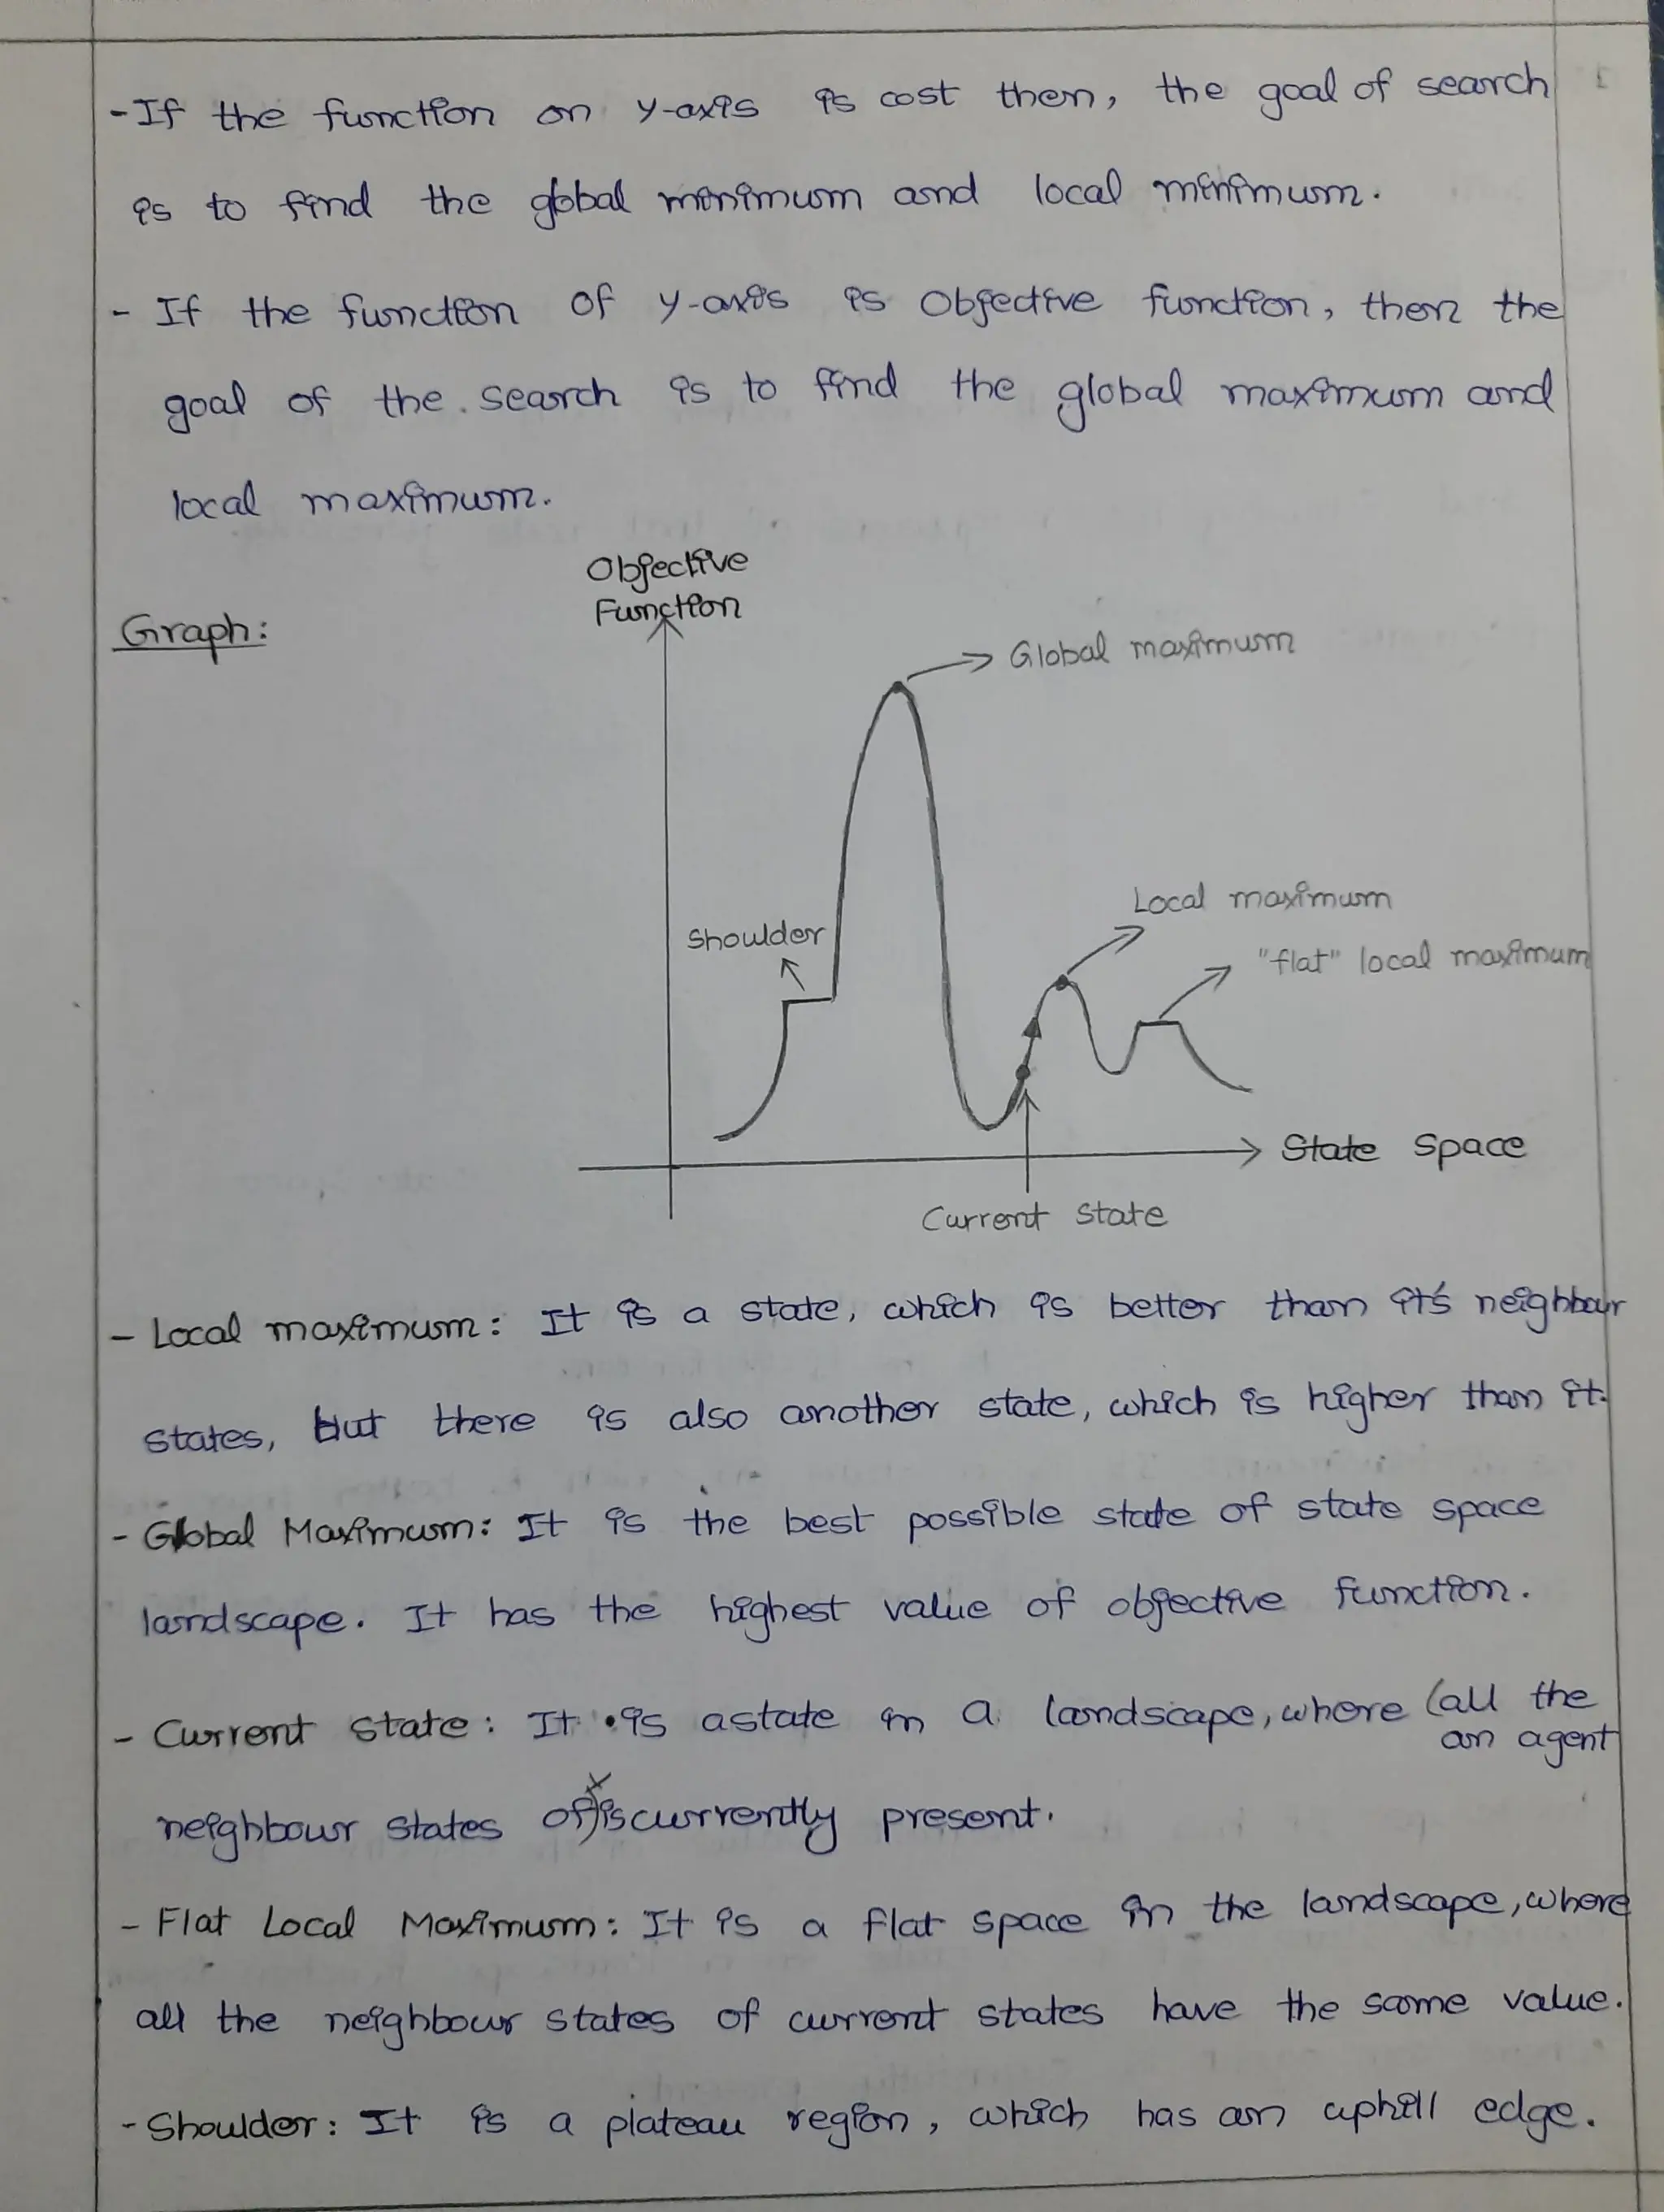 - If the function on y-axis is cost then, the goal of search
is to find the global minimum and local minimum.
- If the function of y-axis is Objective function, then the
goal of the search is to find the global maximum and
local maximum.
Graph:
Objective
Function
Global maximum
Local maximum
Shoulder
"flat" local maximum
State Space
Current state
- Local maximum: It is a state, which is better than it's neighbour
states, but there is also another state, which is higher than it.
- Global Maximum: It is the best possible state of state space
landscape. It has the highest value of objective function.
- Current state: It is a state in a landscape, where (all the
an agent
neighbour states of) is currently present.
- Flat Local Maximum: It is a flat space in the landscape, where
all the neighbour states of current states have the same value.
- Shoulder: It is a plateau region, which has an uphill edge.